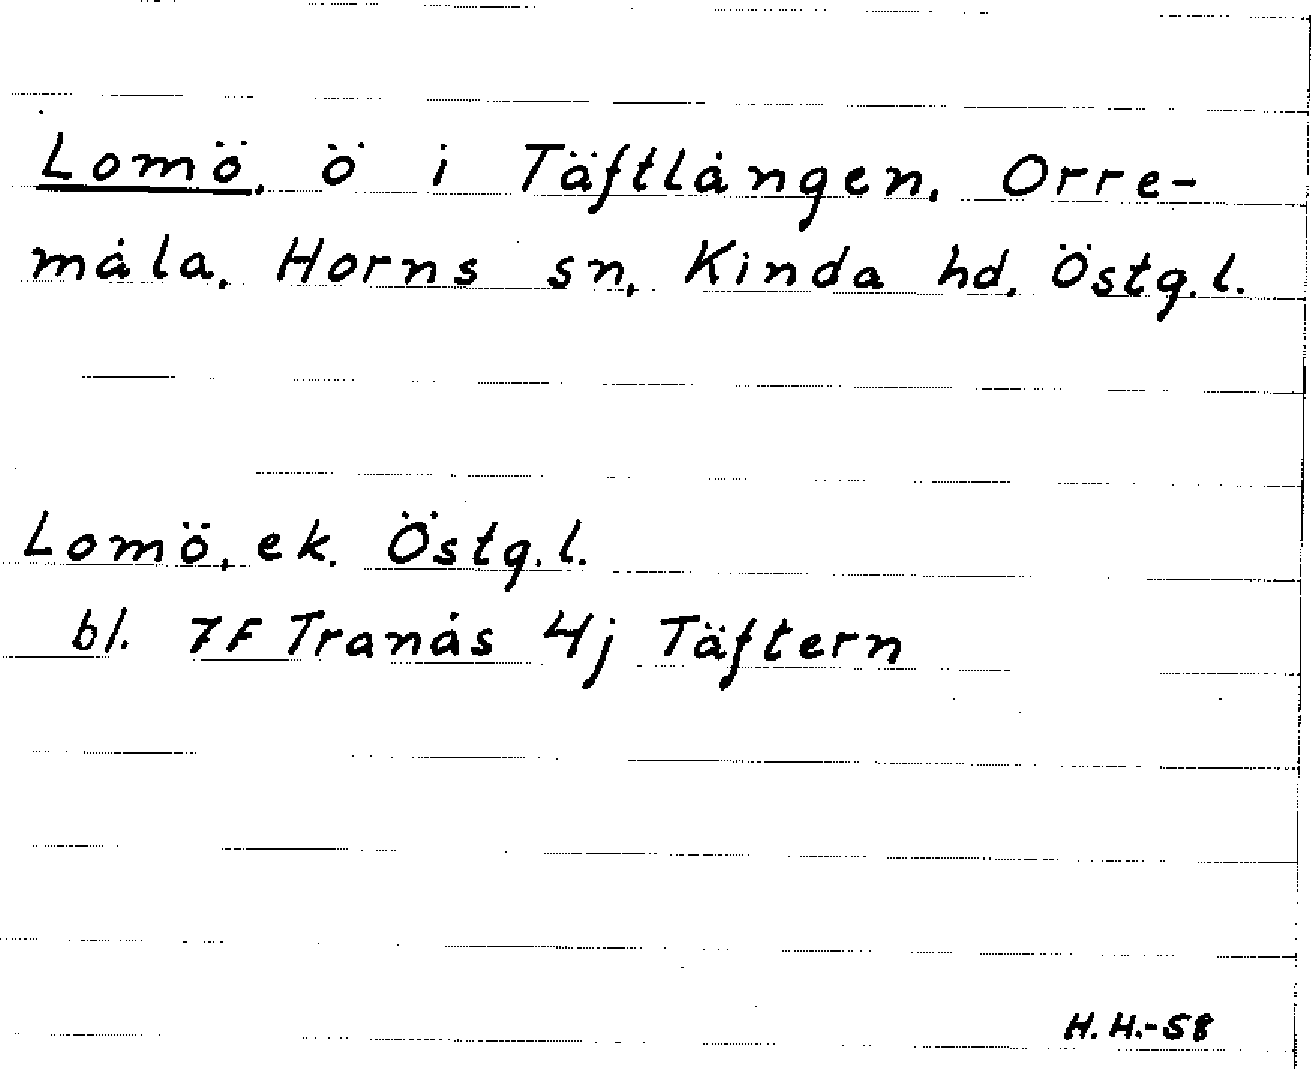 Lomö, ö i Täftlången, Orre-
måla, Horns sn, Kinda hd, Östg.l.
Lomö, ek. Östg.l.
bl. 7F Tranås 4j Täftern
H.H.-58